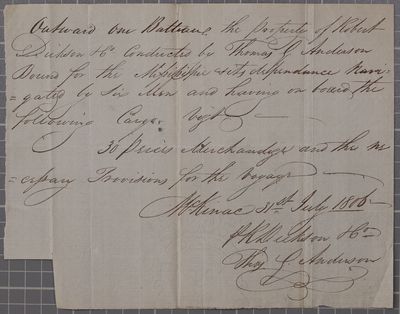 Outward one Batteau, the property of Robert
Dickson & Co. Conducted by Thomas G Anderson
Bound for the Mississippi & its dependance Navi
=gated by Six Men and having on board the
following Cargo Vizt
30 Pieces Merchandize and the ne
=cessary Provisions for the voyage
McKinac 31st July 1806
RDickson & Co
Thos G Anderson